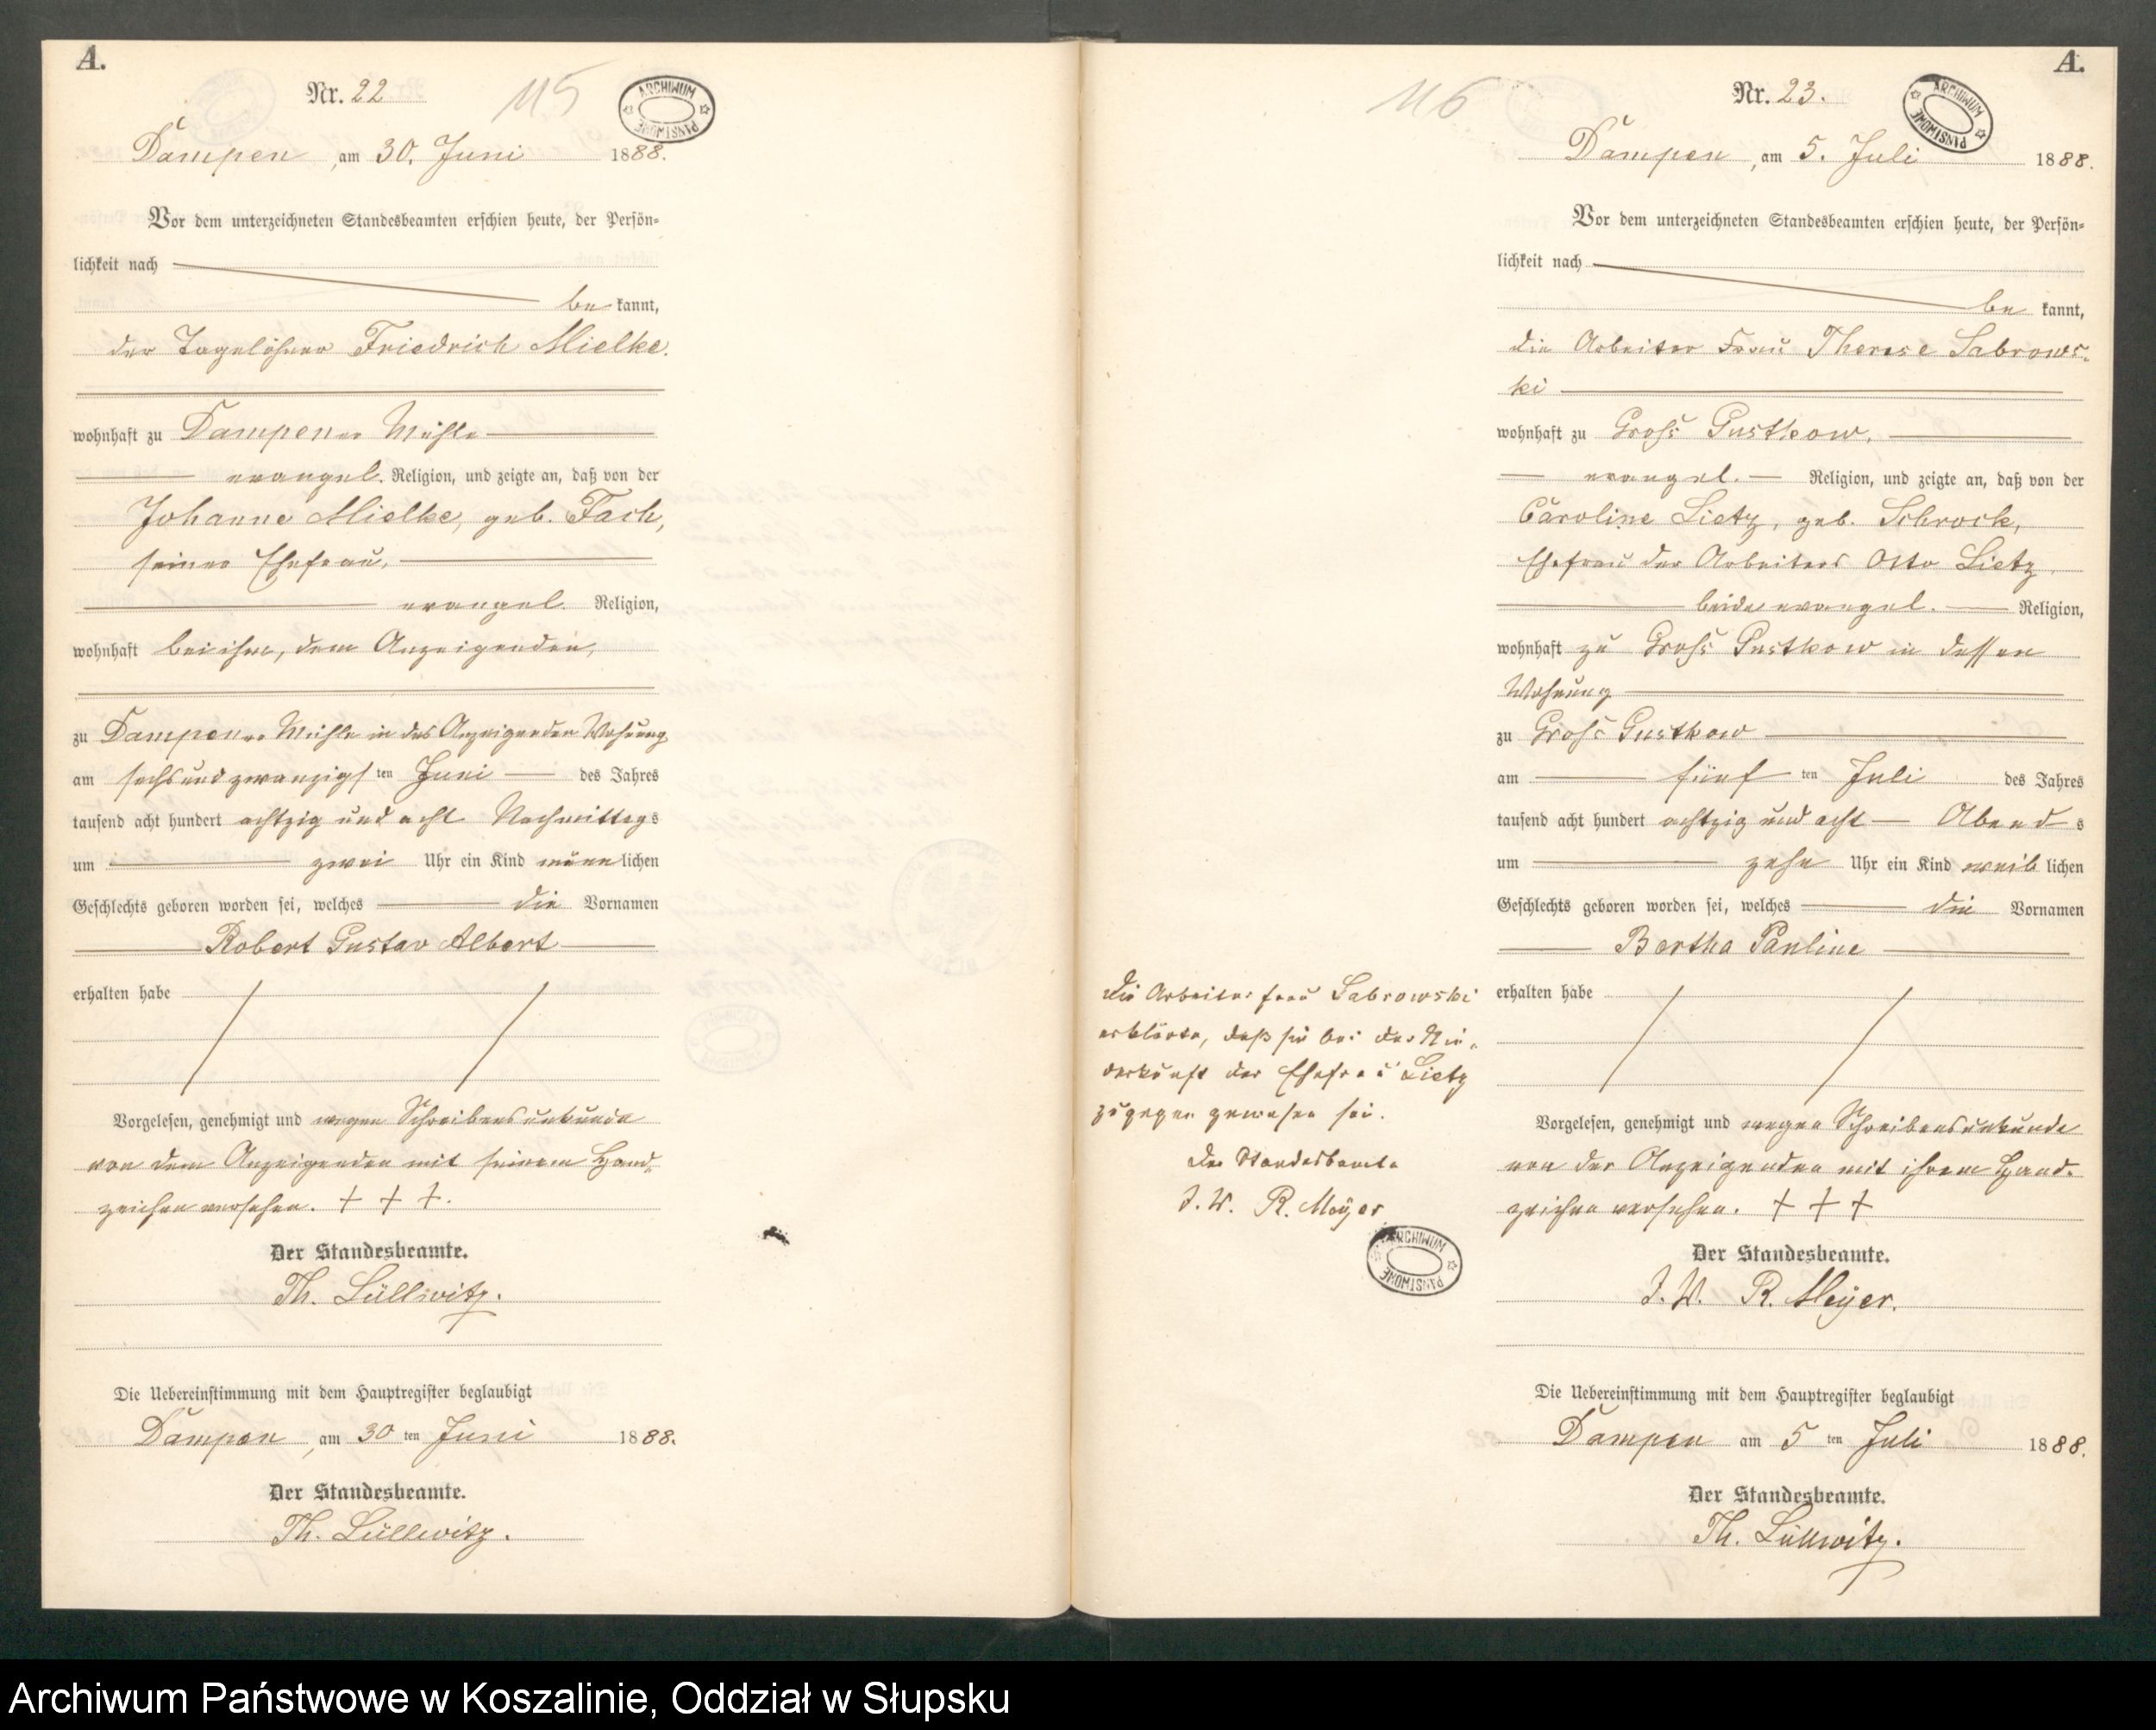 A.
Nr. 22
115
ARCHIWUM PAŃSTWOWE
Dampen, am 30. Juni 1888.
Vor dem unterzeichneten Standesbeamten erschien heute, der Persön-
lichkeit nach
bekannt,
der Tagelöhner Friedrich Mielke.
wohnhaft zu Dampener Mühle
evangel. Religion, und zeigte an, daß von der
Johanne Mielke, geb. Fach,
seiner Ehefrau,
evangel. Religion,
wohnhaft bei ihm, dem Anzeigenden,
zu Dampener Mühle in des Anzeigenden Wohnung
am sechsundzwanzigsten Juni des Jahres
tausend acht hundert achtzig und acht Nachmittags
um zwei Uhr ein Kind männlichen
Geschlechts geboren worden sei, welches die Vornamen
Robert Gustav Albert
erhalten habe
Vorgelesen, genehmigt und wegen Schreibensunkunde
von dem Anzeigenden mit seinem Hand-
zeichen versehen. + + +.
Der Standesbeamte.
Th. Lüllwitz.
Die Uebereinstimmung mit dem Hauptregister beglaubigt
Dampen, am 30ten Juni 1888.
Der Standesbeamte.
Th. Lüllwitz.
A.
Nr. 23.
116
ARCHIWUM PAŃSTWOWE
Dampen, am 5. Juli 1888.
Vor dem unterzeichneten Standesbeamten erschien heute, der Persön-
lichkeit nach
bekannt,
die Arbeiter Frau Therese Labrows-
ki
wohnhaft zu Groß Gustkow,
evangel. Religion, und zeigte an, daß von der
Caroline Lietz, geb. Schrock,
Ehefrau des Arbeiters Otto Lietz,
beide evangel. Religion,
wohnhaft zu Groß Gustkow in dessen
Wohnung
zu Groß Gustkow
am fünften Juli des Jahres
tausend acht hundert achtzig und acht Abends
um zehn Uhr ein Kind weiblichen
Geschlechts geboren worden sei, welches die Vornamen
Bertha Pauline
erhalten habe
Die Arbeiter frau Labrowski
erklärte, daß sie bei der Nie-
derkunft der Ehefrau Lietz
zugegen gewesen sei.
Der Standesbeamte
I. V. R. Meyer
ARCHIWUM PAŃSTWOWE
Vorgelesen, genehmigt und wegen Schreibensunkunde
von der Anzeigenden mit ihrem Hand-
zeichen versehen. + + +
Der Standesbeamte.
I. V. R. Meyer.
Die Uebereinstimmung mit dem Hauptregister beglaubigt
Dampen am 5ten Juli 1888.
Der Standesbeamte.
Th. Lüllwitz.
Archiwum Państwowe w Koszalinie, Oddział w Słupsku